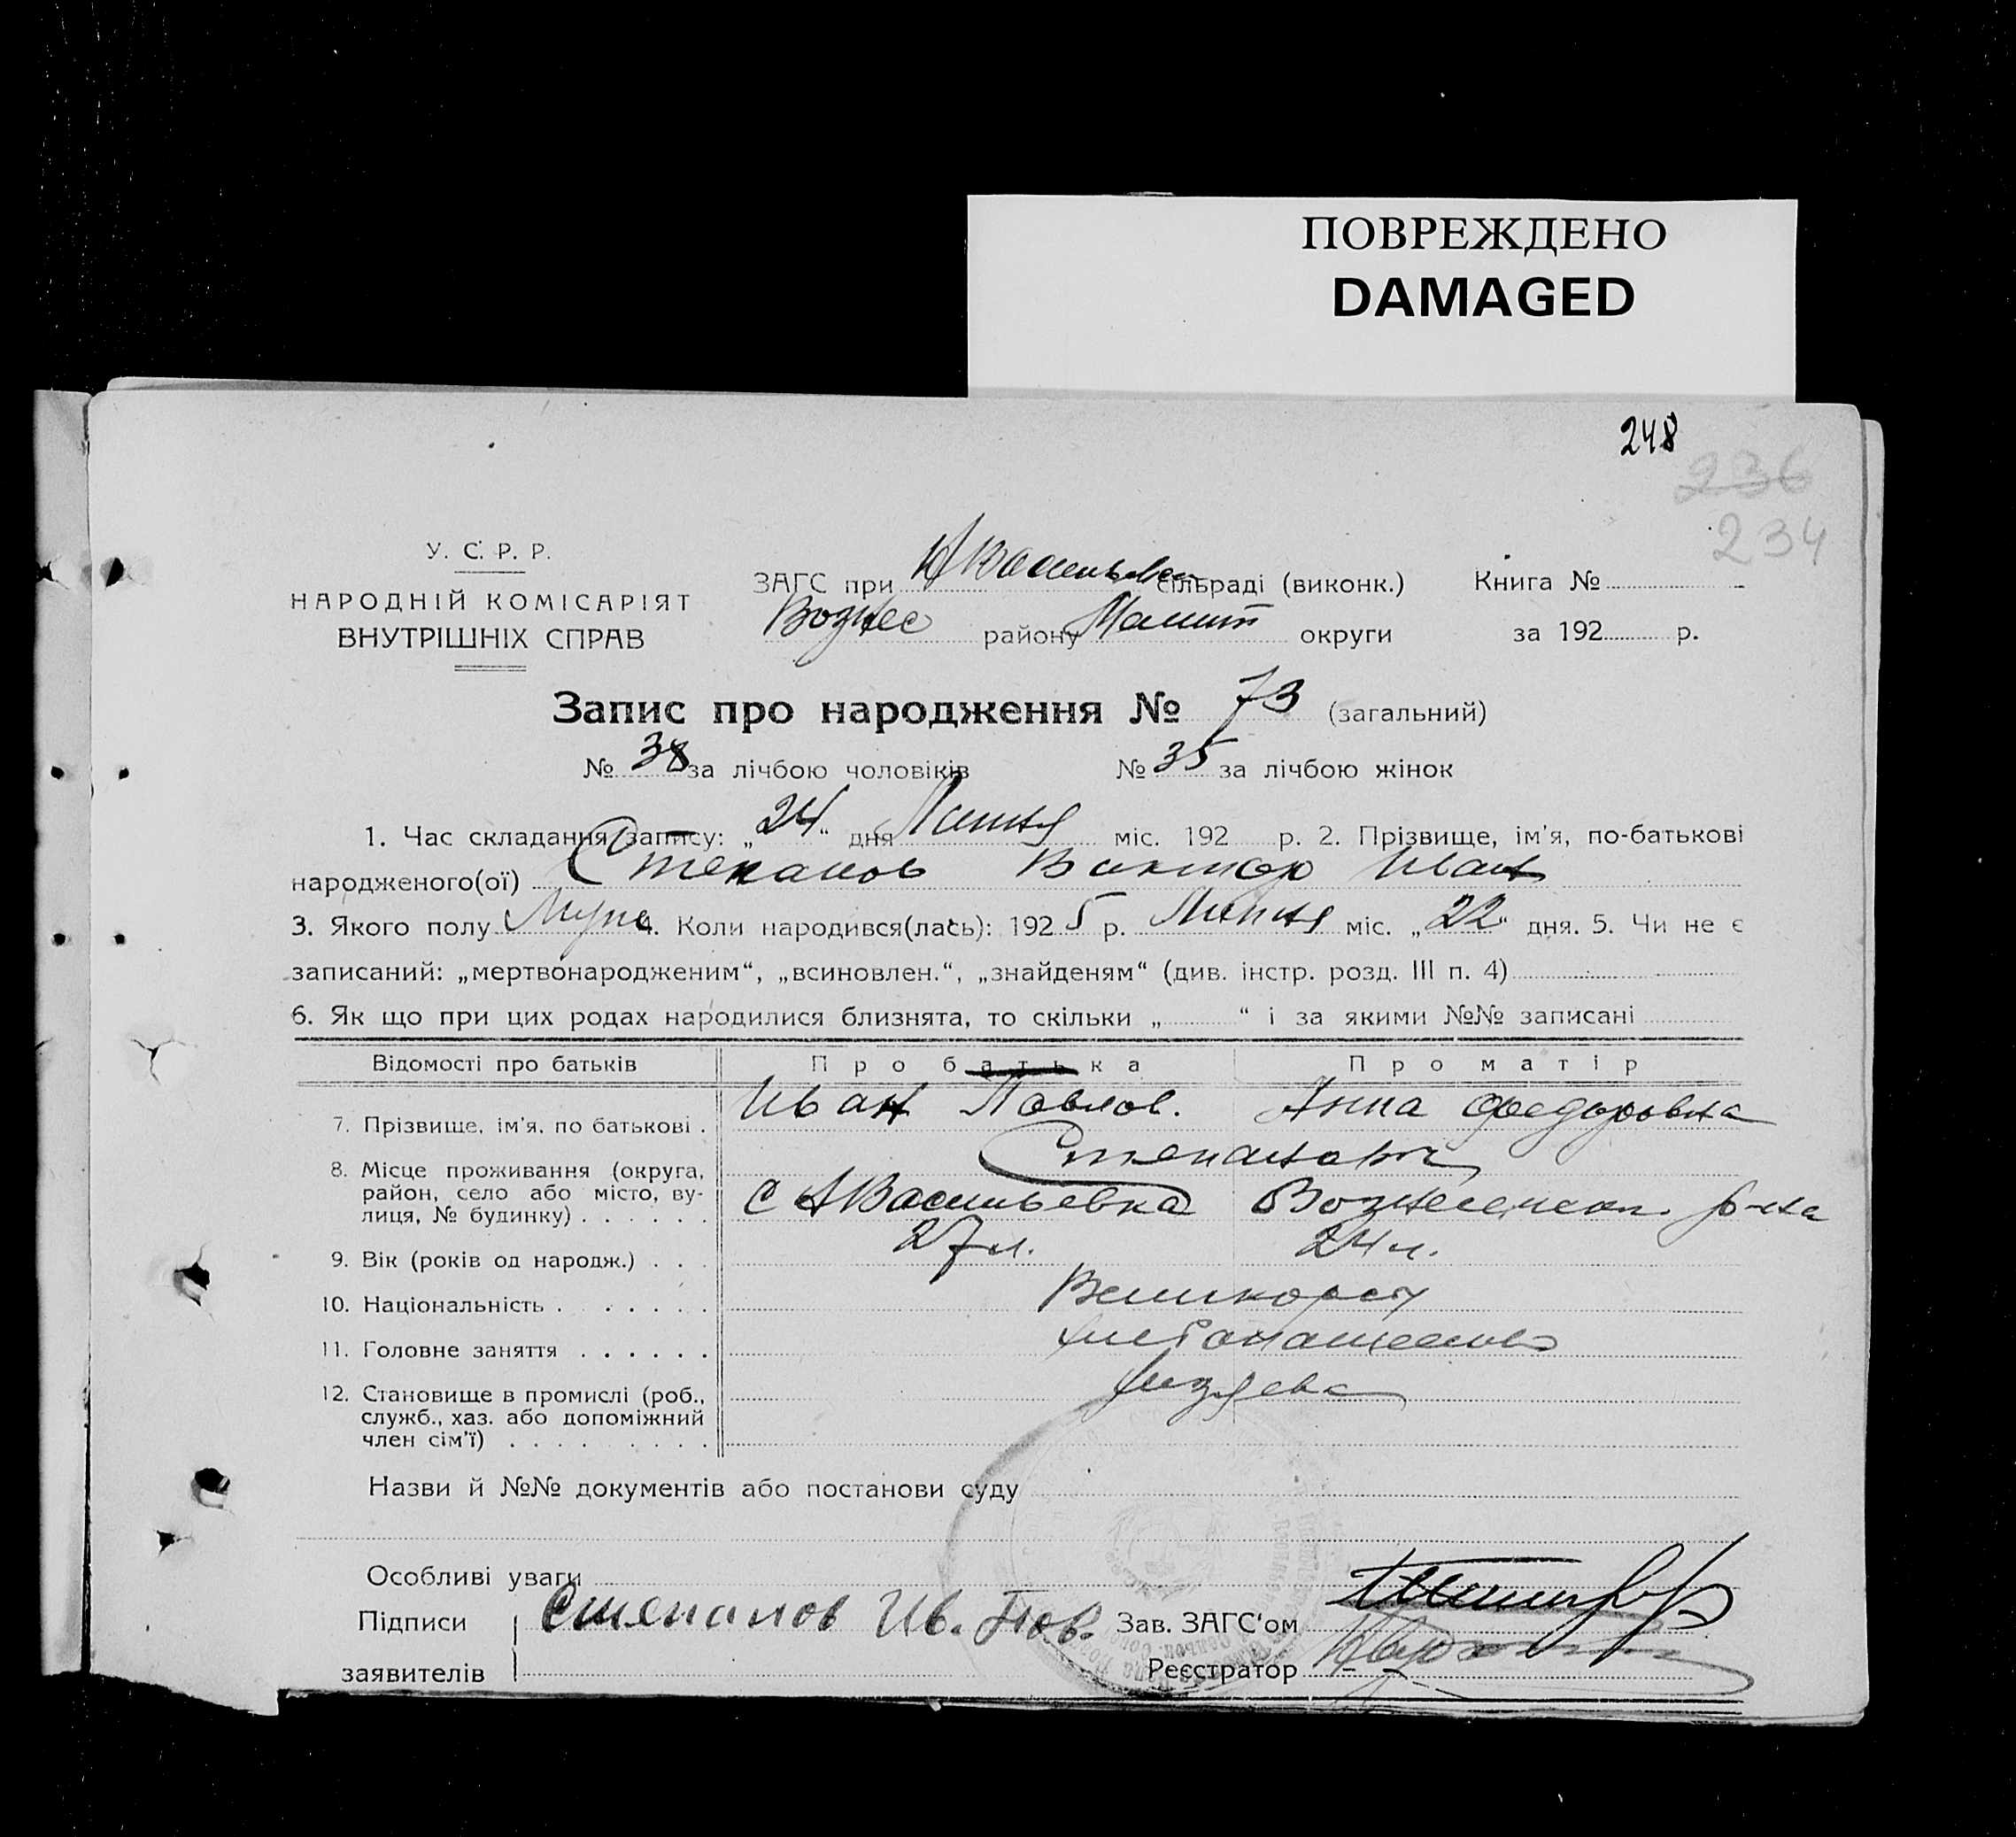 ПОВРЕЖДЕНО
DAMAGED
248
236
234
У. С. Р. Р.
НАРОДНІЙ КОМІСАРІЯТ
ВНУТРІШНІХ СПРАВ
ЗАГС при сільраді (виконк.) Книга №
Вознес району округи за 192 р.
Запис про народження № 73 (загальний)
№ 38 за лічбою чоловіків № 35 за лічбою жінок
1. Час складання запису: „24“ дня Липня міс. 192 р. 2. Прізвище, ім'я, по-батькові
народженого(ої) Степанов Виктор Иван
3. Якого полу Муж 4. Коли народився(лась): 1925 р. Липня міс. „22“ дня. 5. Чи не є
записаний: „мертвонародженим“, „всиновлен.“, „знайденям“ (див. інстр. розд. III п. 4)
6. Як що при цих родах народилися близнята, то скільки „ “ і за якими №№ записані
Відомості про батьків Про батька Про матір
7. Прізвище, ім'я, по батькові . Иван Павлов. Анна Федоровна
Степановы
8. Місце проживання (округа, район, село або місто, вулиця, № будинку) . . . . . . с АВасильевка Вознесенск. р-на
9. Вік (років од народж.) . . . 27 л. 24 л.
10. Національність . . . . . . Великорос
11. Головне заняття . . . . . .
12. Становище в промислі (роб., служб., хаз. або допоміжний член сім'ї) . . . . . . . .
Назви й №№ документів або постанови суду
Особливі уваги
Підписи заявителів Степанов Ив. Пав. Зав. ЗАГС'ом
Реєстратор